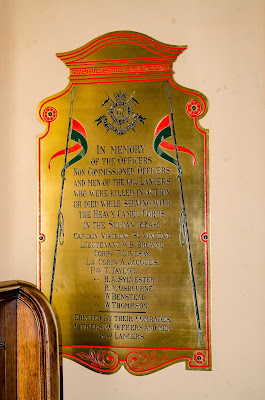 IN MEMORY
OF THE OFFICERS,
NON COMMISSIONED OFFICERS
AND MEN OF THE 16TH LANCERS
WHO WERE KILLED IN ACTION
OR DIED WHILE SERVING WITH
THE HEAVY CAMEL CORPS
IN THE SOUDAN 1884-5.
CAPTAIN VISCOUNT ST VINCENT.
LIEUTENANT W.B. BROWNE.
CORPL
LCE CORPL A. JACQUES.
PTE T. TAYLOR.
" H.A. SYLVESTER.
" R.W. OSBOURNE.
" W. BENSTEAD.
" W. THOMPSON.
ERECTED BY THEIR COMRADES,
BROTHER OFFICERS AND MEN
16TH LANCERS.